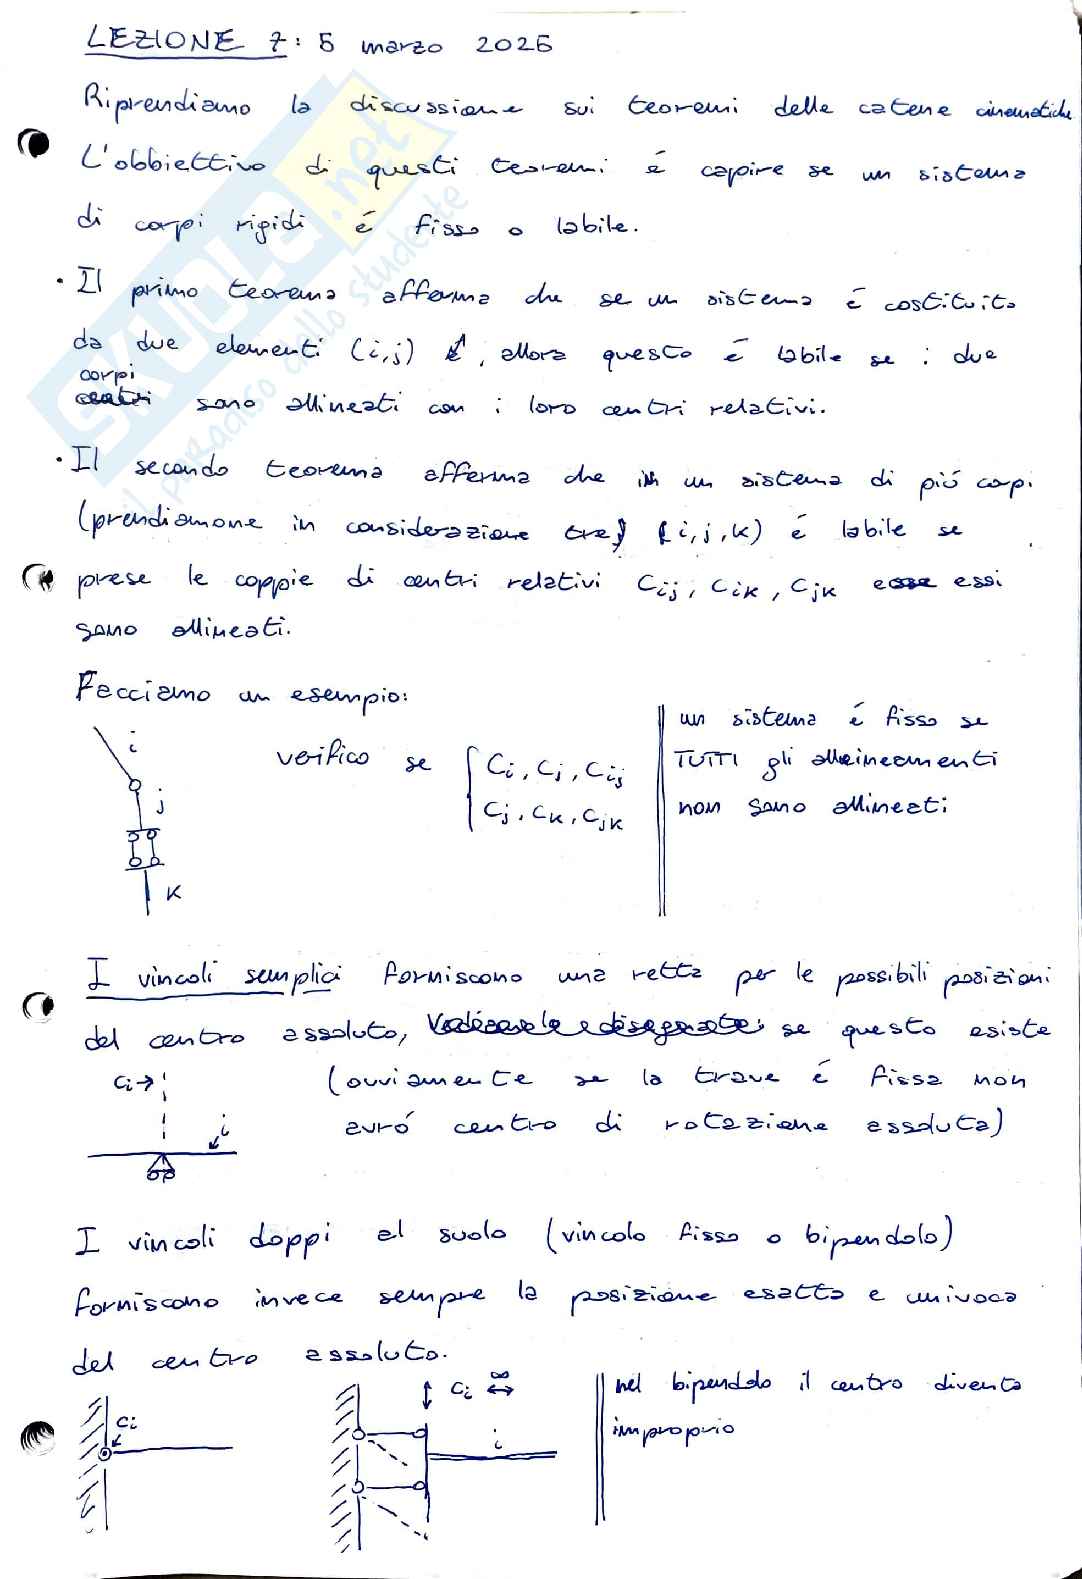 LEZIONE 7: 5 marzo 2025
Riprendiamo la discussione sui teoremi delle catene cinematiche
L'obbiettivo di questi teoremi é capire se un sistema
di corpi rigidi é fisso o labile.
· Il primo teorema afferma che se un sistema é costituito
da due elementi (i,j), allora questo é labile se i due
corpi
sono allineati con i loro centri relativi.
· Il secondo teorema afferma che in un sistema di piú corpi
(prendiamone in considerazione tre) (i,j,k) é labile se
prese le coppie di centri relativi Cij, Cik, Cjk essi
sono allineati.
Facciamo un esempio:
i
j
k
verifico se
Ci, Cj, Cij
Cj, Ck, Cjk
un sistema é fisso se
TUTTI gli allineamenti
non sono allineati
I vincoli semplici forniscono una retta per le possibili posizioni
del centro assoluto, se questo esiste
(ovviamente se la trave é fissa non
avró centro di rotazione assoluta)
Ci→
i
I vincoli doppi al suolo (vincolo fisso o bipendolo)
forniscono invece sempre la posizione esatta e univoca
del centro assoluto.
Ci
↕ Ci ∞ ↔
i
nel bipendolo il centro diventa
improprio
SKUOLA.net
il paradiso dello studente